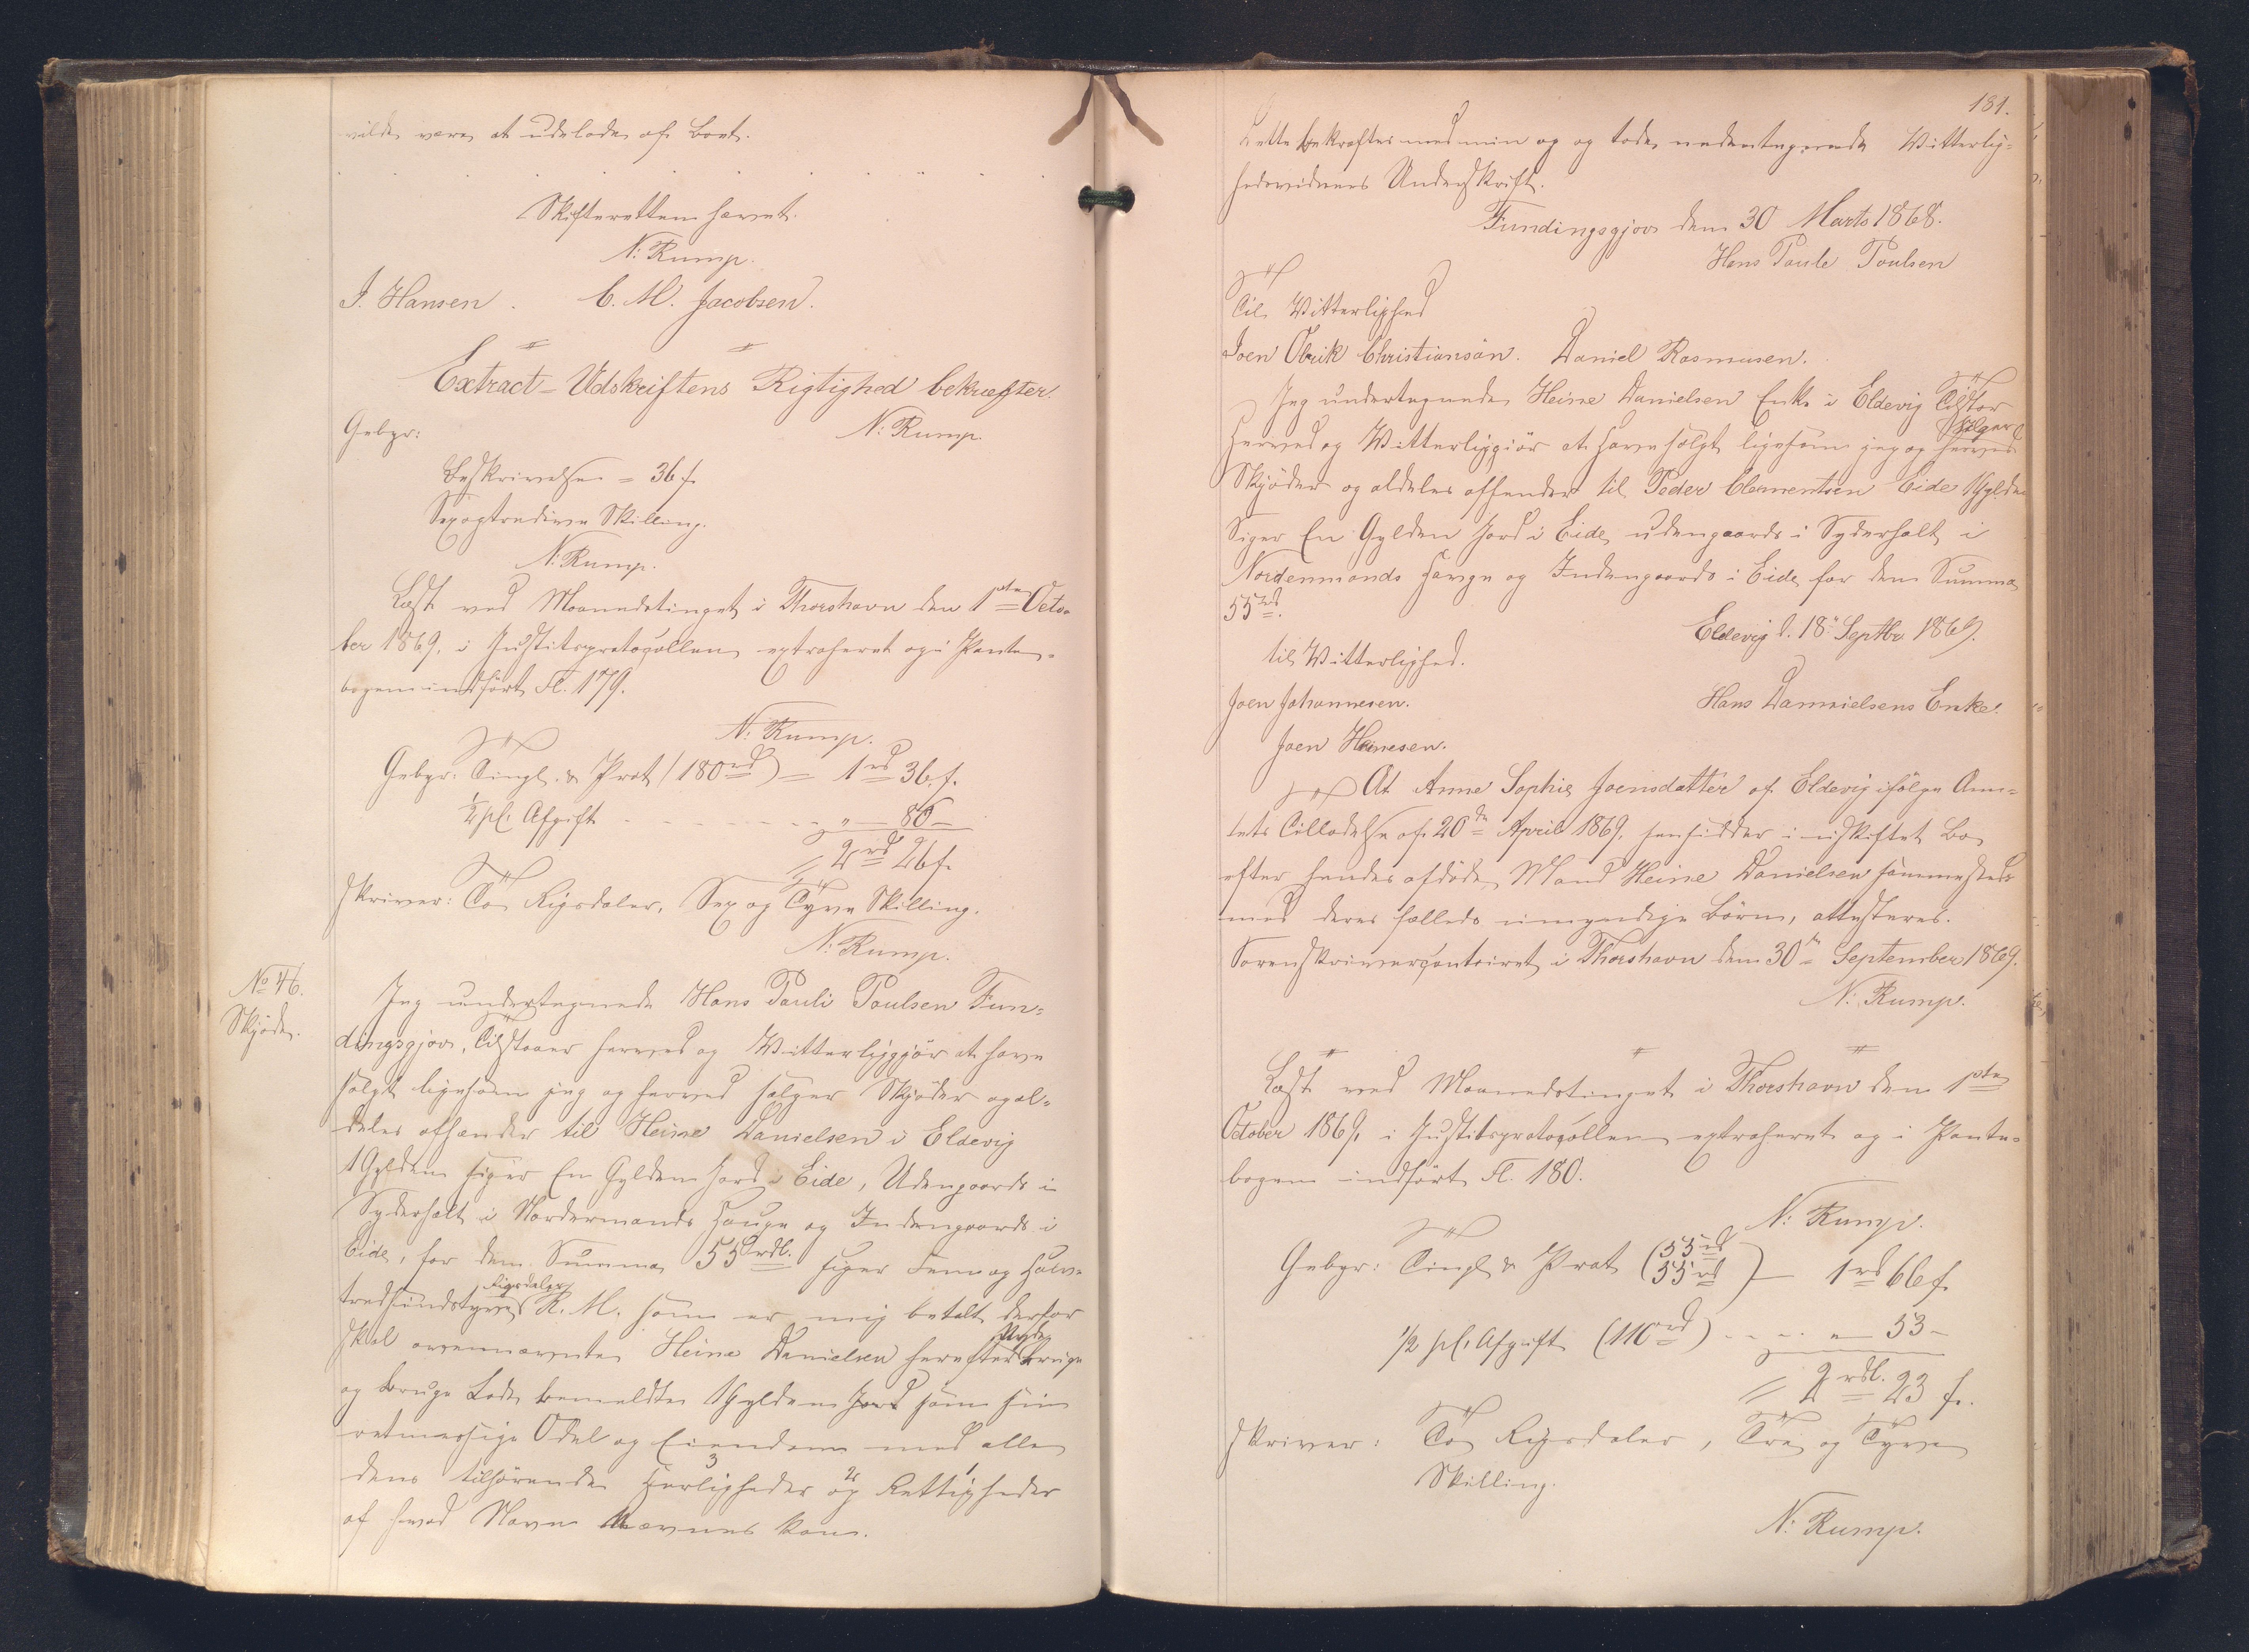 vilde være at udelade af Boet.
Skifteretten hævet.
N: Rump.
J. Hansen. C. M. Jacobsen.
Extract-Udskriftens Rigtighed bekræfter.
Gebyr: N: Rump.
Beskrivelsen = 36 s.
Sexogtredive Skilling.
N: Rump.
Læst ved Maanedstinget i Thorshavn den 1ste Octo-
ber 1869, i Justitsprotocollen extraheret og i Pante-
bogen indført Fl. 179.
N: Rump.
Gebyr: Tingl. & Prot (180 rd) = 1 rd 36 s.
½ pCt Afgift - - - - - - - " — 80 —
2 rd 26 s.
skriver: To Rigsdaler, Sex og Tyve Skilling.
N: Rump.
No 46.
Skjöde.
Jeg undertegnede Hans Pauli Poulsen Fun-
dingsgjov, Tilstaaer herved og Witterliggjör at have
solgt ligesom jeg og herved sælger Skjöder og al-
deles afhænder til Heine Danielsen i Eldevig
1 Gylden siger En Gylden Jord i Eide, Udengaards i
Syderhalt i Nordenmands Hauge og Indengaards i
Eide, for den Summa 55 rdl. siger Fem og Halv-
tredsindstyve Rigsdaler R. M. som er mig betalt derfor
skal ovennævnte Heine Danielsen herefter Nyde bruge
og bruge Lade bemeldte 1 Gylden Jord som sin
retmæssige Odel og Eiendom med alle
dens tilhörende Herligheder 3 og 2 Rettigheder 1
af hvad Navn nævnes kan.
181.
Dette bekræftes med min og og tode undertegnede Witterlig-
hedsvidners Underskrift.
Fundingsgjov den 30 Marts 1868.
Hans Paule Poulsen
Til Witterlighed
Joen Olrik Christiansän. Daniel Rasmusen.
Jeg undertegnede Heine Danielsen Enke i Eldevig Tilstor
herved og Witterliggiör at have solgt ligesom jeg og herved sölger
Skjöder og aldeles affender til Peder Clementsen Eide 1 Gylden
Siger En Gylden Jord i Eide udengaards i Syderhalt i
Nordenmands Havge og Indengaards i Eide for den Summa
55 rd.
Eldevig d. 18" Septbr 1869.
til Witterlighed.
Joen Johannesen. Hans Dannielsens Enke.
Joen Heinesen.
At Anne Sophie Joensdatter af Eldevig ifölge Am-
tets Tilladelse af 20de April 1869, hensidder i uskiftet Bo
efter hendes afdöde Mand Heine Danielsen sammesteds
med deres fælleds umyndige Börn, attesteres.
Sorenskrivercontoiret i Thorshavn den 30te September 1869.
N: Rump.
Læst ved Maanedstinget i Thorshavn den 1ste
October 1869, i Justitsprotocollen extraheret og i Pante-
bogen indført Fl. 180.
N: Rump.
Gebyr: Tingl & Prot (55 rd 55 rd) — 1 rd 66 s.
½ pCt. Afgift (110 rd) - - - " — 53 —
2 rdl. 23 s.
skriver: To Rigsdaler, Tre og Tyve
Skilling.
N: Rump.